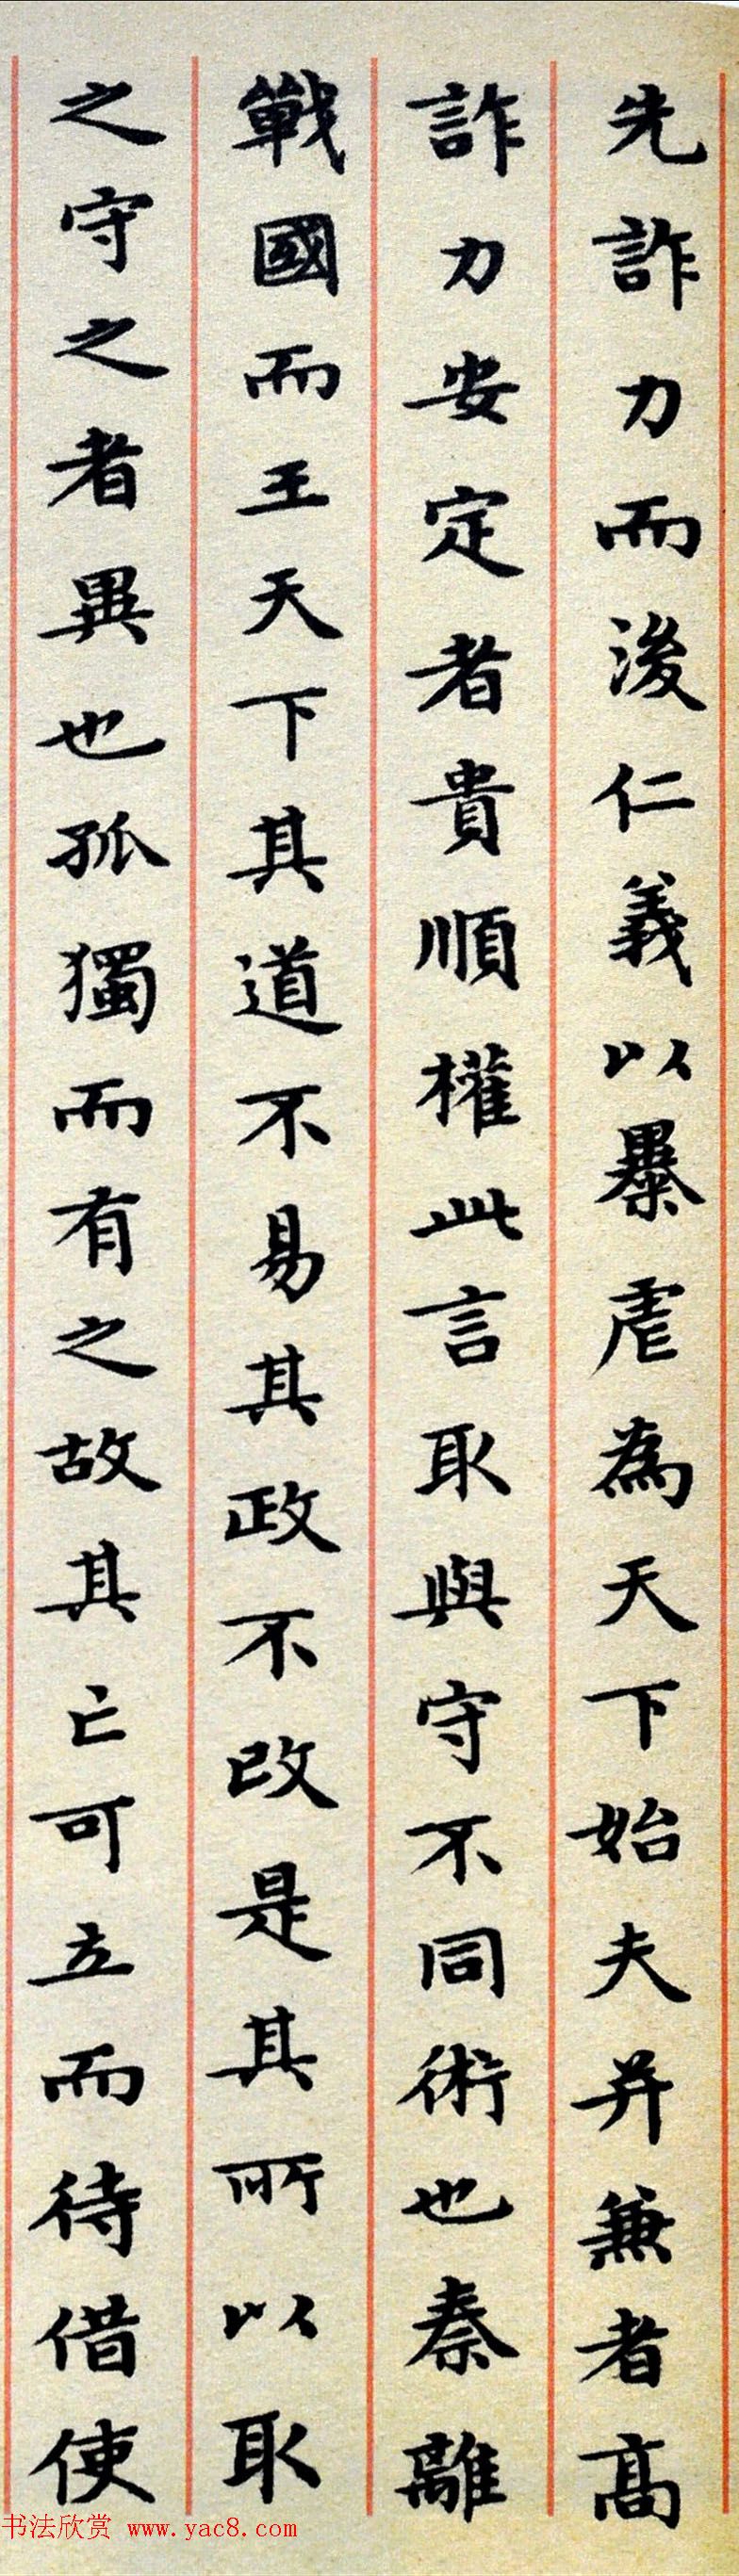 先詐力而後仁義以暴虐為天下始夫并兼者高
詐力安定者貴順權此言取與守不同術也秦離
戰國而王天下其道不易其政不改是其所以取
之守之者異也孤獨而有之故其亡可立而待借使
书法欣赏 www.yac8.com